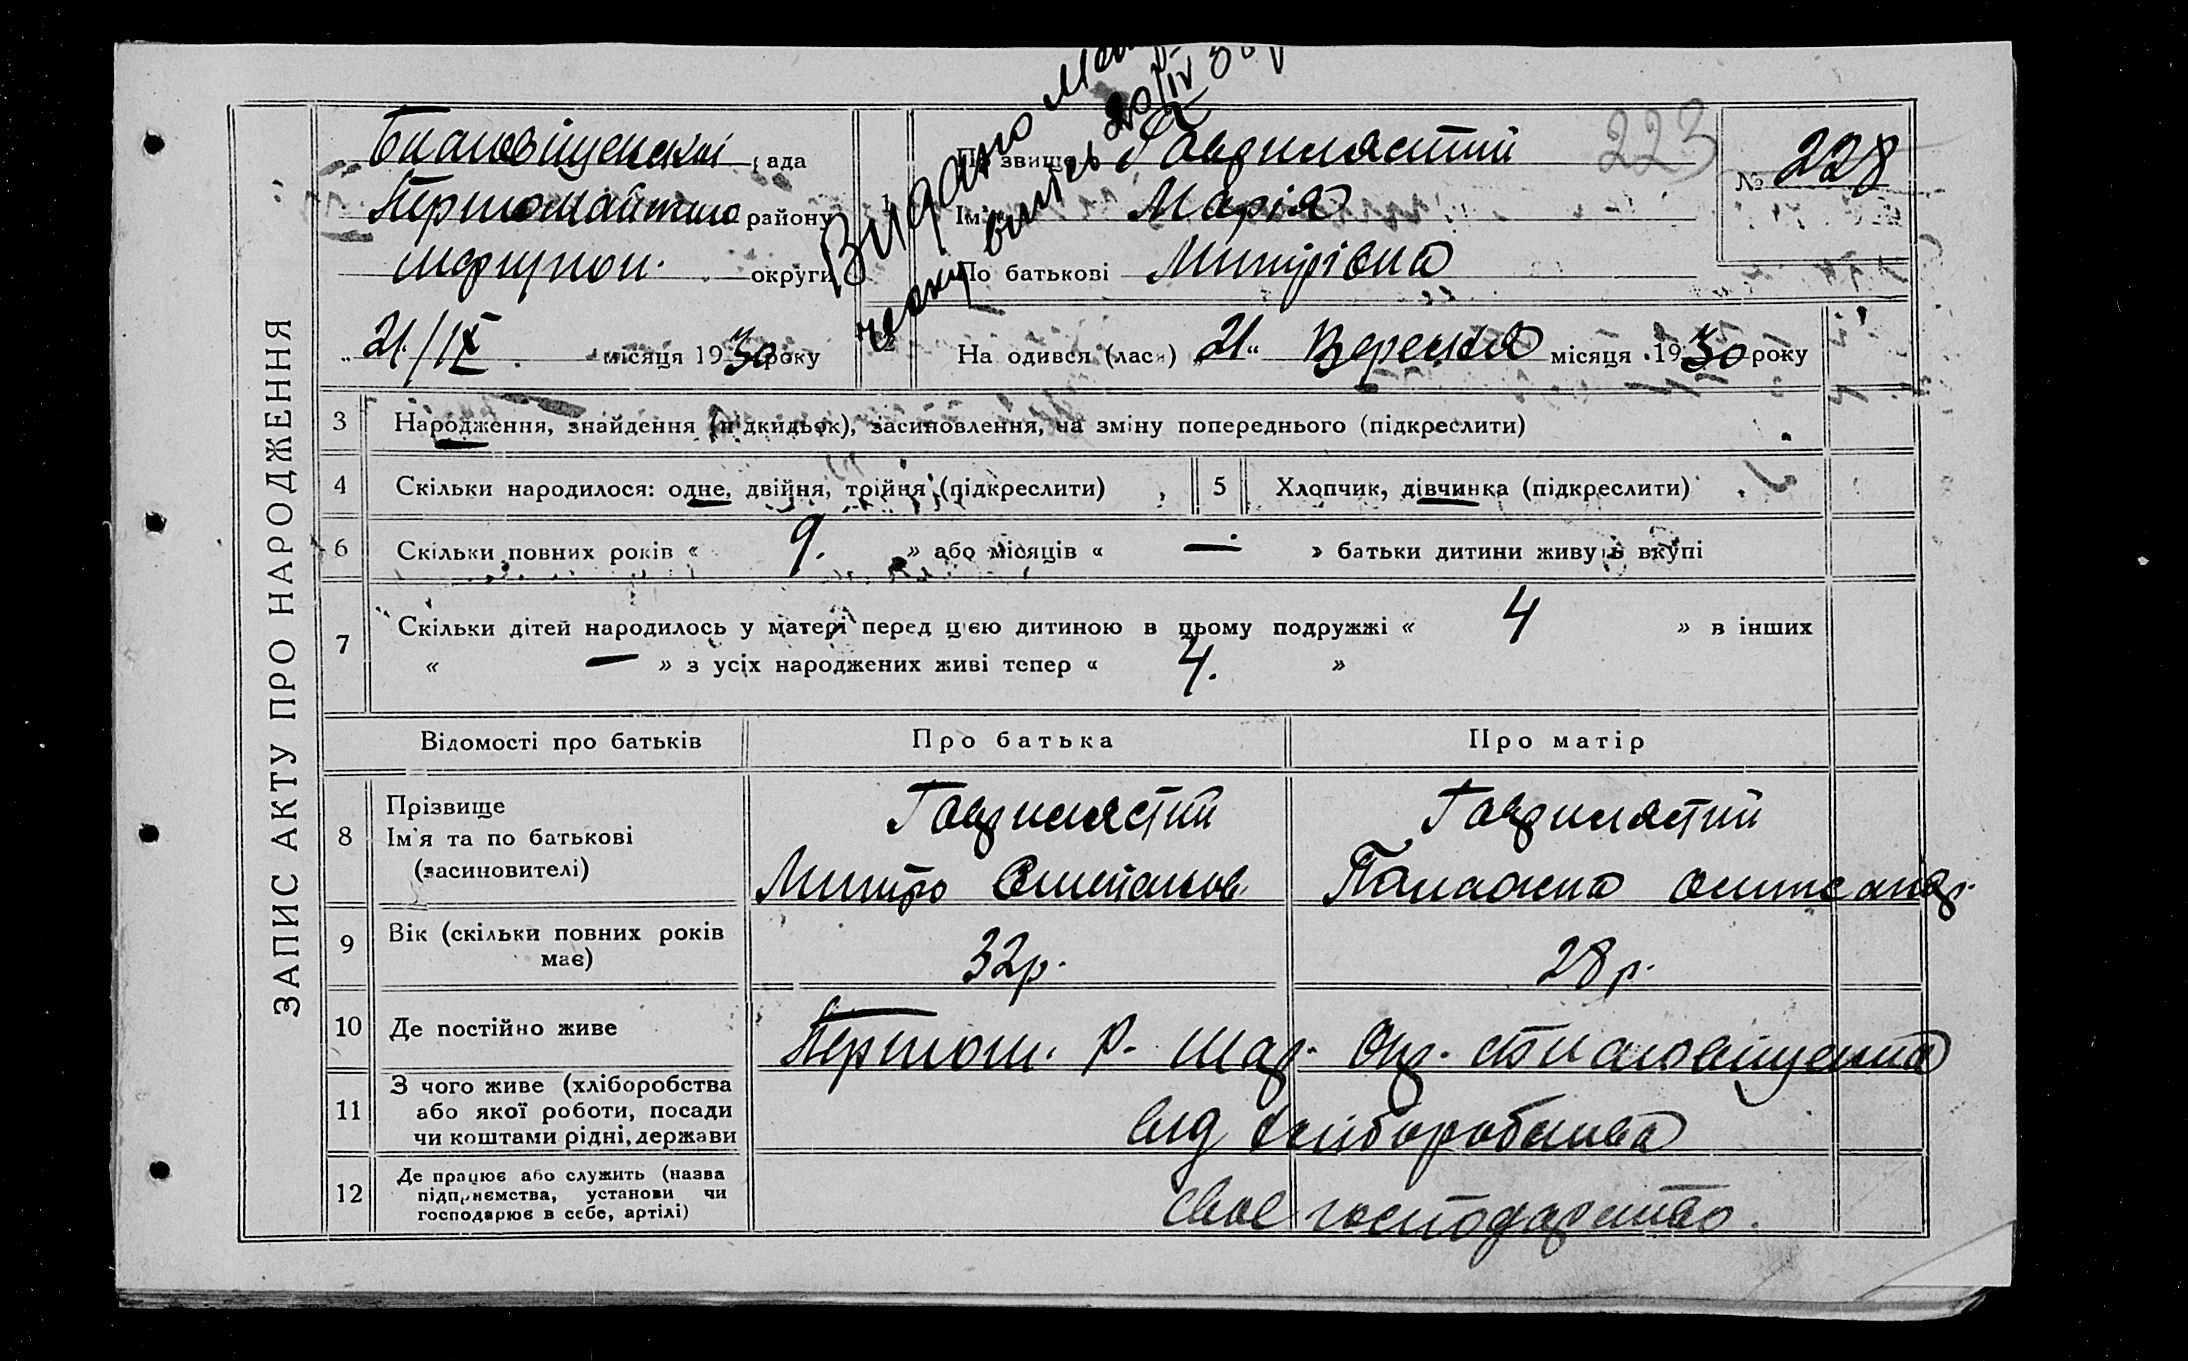 ЗАПИС АКТУ ПРО НАРОДЖЕННЯ
рада
району
округи
21/IX місяця 1930 року
Видано
223
№ 228
Прізвище Гаврилястий
Ім'я Марія
По батькові Митрівна
На одився (лася) „21" Вересня місяця 1930 року
3 Народження, знайдення (підкидьок), засиновлення, на зміну попереднього (підкреслити)
4 Скільки народилося: одне, двійня, трійня (підкреслити)
5 Хлопчик, дівчинка (підкреслити)
6 Скільки повних років « 9. » або місяців « — » батьки дитини живуть вкупі
7 Скільки дітей народилось у матері перед цією дитиною в цьому подружжі « 4 » в інших
« — » з усіх народжених живі тепер « 4. »
Відомості про батьків Про батька Про матір
8 Прізвище
Ім'я та по батькові
(засиновителі)
Гаврилястий
Митро Степанов
Гаврилястий
9 Вік (скільки повних років має)
32р.
28р.
10 Де постійно живе
11 З чого живе (хліборобства
або якої роботи, посади
чи коштами рідні, держави
від хліборобства
12 Де працює або служить (назва
підприємства, установи чи
господарює в себе, артілі)
своє господарство.